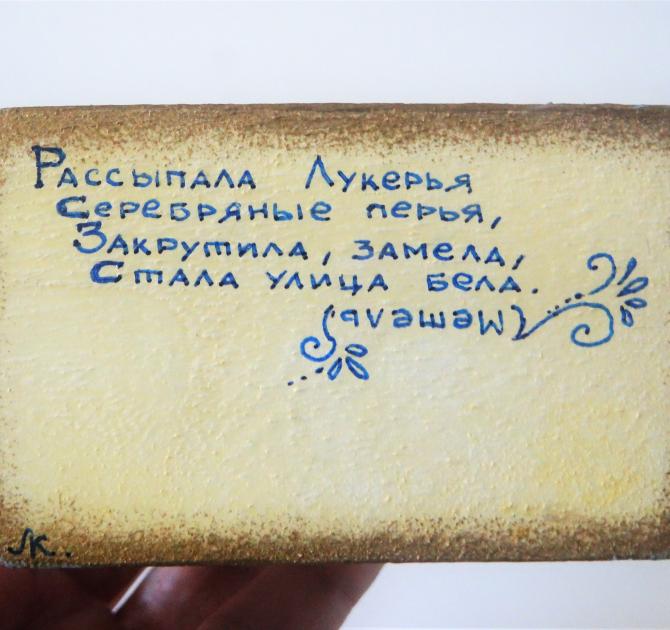 Рассыпала Лукерья
Серебряные перья,
Закрутила, замела,
Стала улица бела.
(Метель)
ЛК.